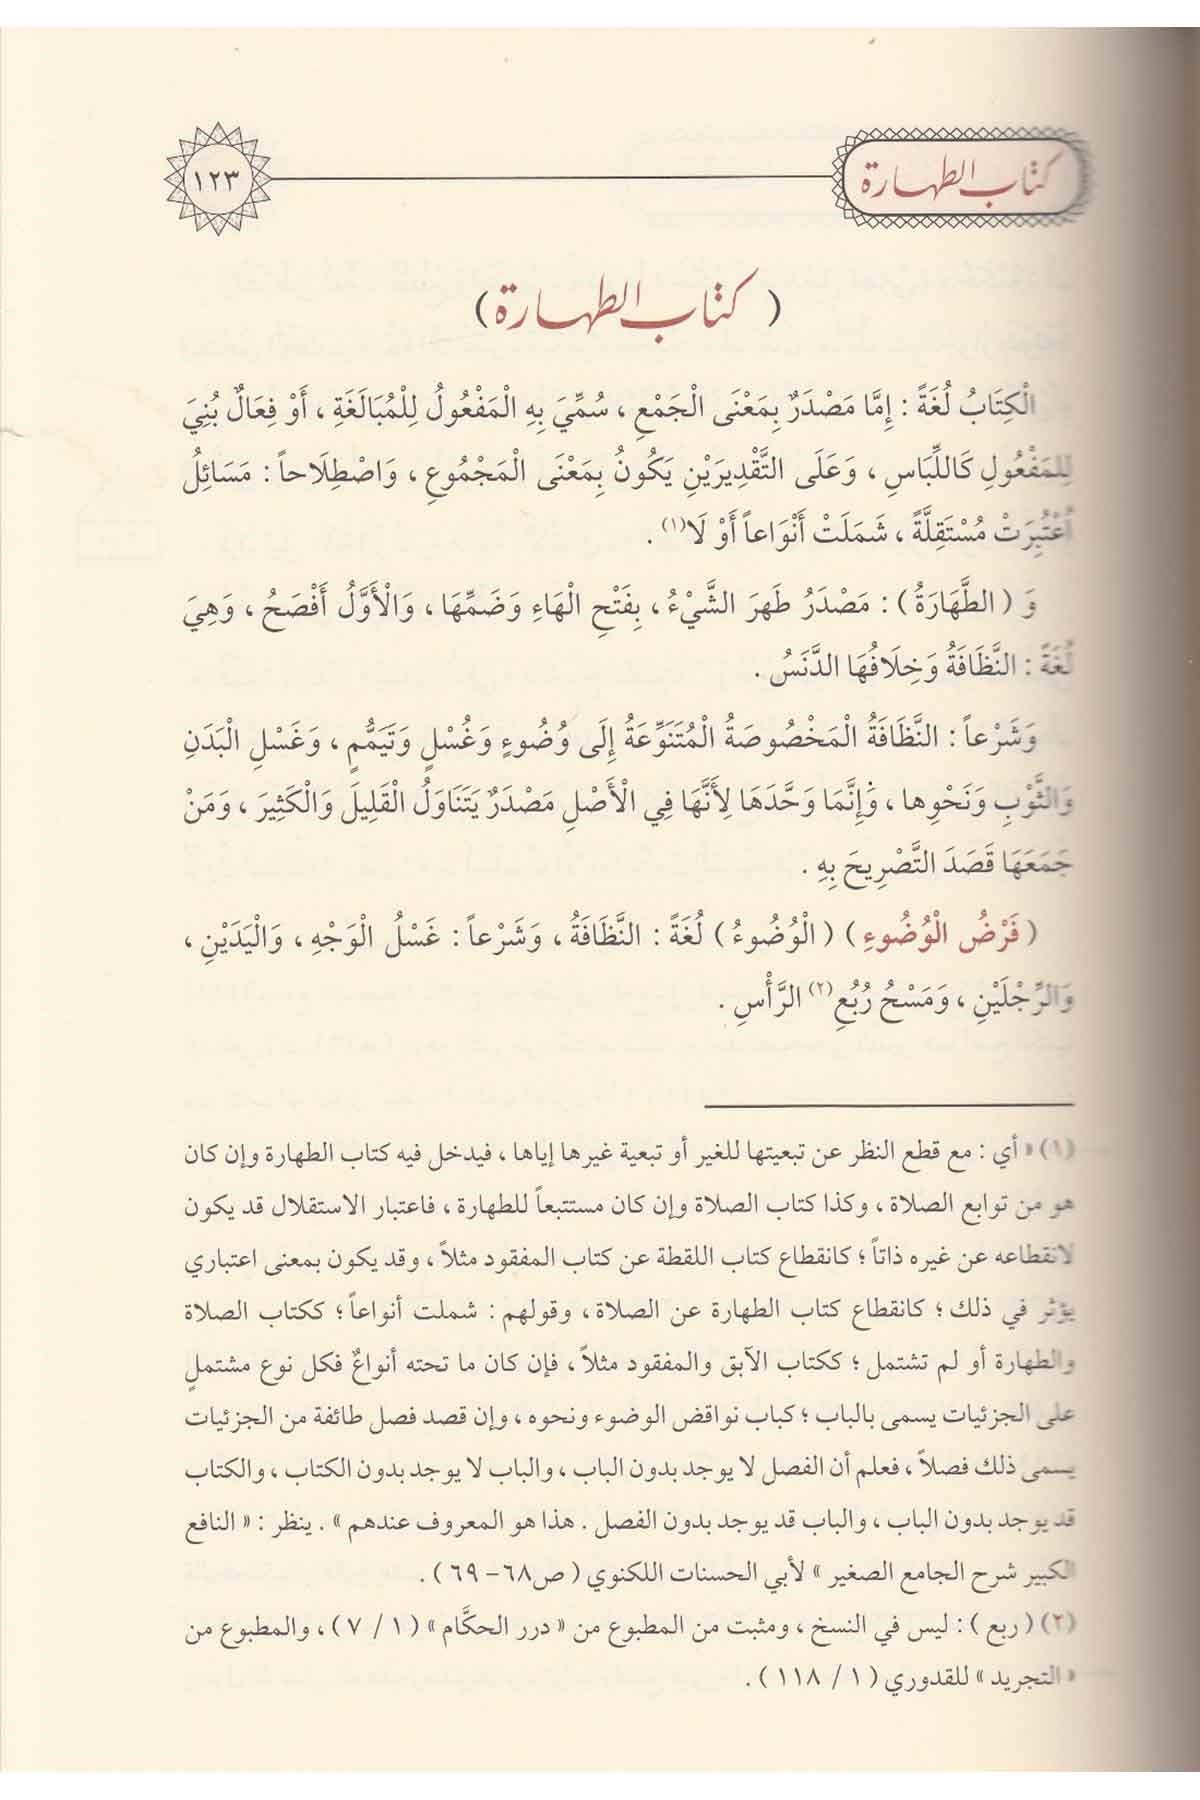 كتاب الطهارة
١٢٣
( كتاب الطهارة )
الْكِتَابُ لُغَةً : إِمَّا مَصْدَرٌ بِمَعْنَى الْجَمْعِ ، سُمِّيَ بِهِ الْمَفْعُولُ لِلْمُبَالَغَةِ ، أَوْ فِعَالٌ بُنِيَ
لِلمَفْعُولِ كَاللِّبَاسِ ، وَعَلَى التَّقْدِيرَيْنِ يَكُونُ بِمَعْنَى الْمَجْمُوعِ ، وَاصْطِلَاحاً : مَسَائِلُ
اُعْتُبِرَتْ مُسْتَقِلَّةً ، شَمَلَتْ أَنْوَاعاً أَوْ لَا(١) .
وَ ( الطَّهَارَةُ ) : مَصْدَرُ طَهرَ الشَّيْءُ ، بِفَتْحِ الْهَاءِ وَضَمِّهَا ، وَالْأَوَّلُ أَفْصَحُ ، وَهِيَ
لُغَةً : النَّظَافَةُ وَخِلَافُهَا الدَّنَسُ .
وَشَرْعاً : النَّظَافَةُ الْمَخْصُوصَةُ الْمُتَنَوِّعَةُ إِلَى وُضُوءٍ وَغُسْلٍ وَتَيَمُّمٍ ، وَغَسْلِ الْبَدَنِ
وَالثَّوْبِ وَنَحْوِها ، وَإِنَّمَا وَحَّدَهَا لِأَنَّهَا فِي الْأَصْلِ مَصْدَرٌ يَتَنَاوَلُ الْقَلِيلَ وَالْكَثِيرَ ، وَمَنْ
جَمَعَهَا قَصَدَ التَّصْرِيحَ بِهِ .
( فَرْضُ الْوُضُوءِ ) ( الْوُضُوءُ ) لُغَةً : النَّظَافَةُ ، وَشَرْعاً : غَسْلُ الْوَجْهِ ، وَالْيَدَيْنِ ،
وَالرِّجْلَيْنِ ، وَمَسْحُ رُبُعِ(٢) الرَّأْسِ .
(١) « أي : مع قطع النظر عن تبعيتها للغير أو تبعية غيرها إياها ، فيدخل فيه كتاب الطهارة وإن كان
هو من توابع الصلاة ، وكذا كتاب الصلاة وإن كان مستتبعاً للطهارة ، فاعتبار الاستقلال قد يكون
لانقطاعه عن غيره ذاتاً ؛ كانقطاع كتاب اللقطة عن كتاب المفقود مثلاً ، وقد يكون بمعنى اعتباري
يؤثر في ذلك ؛ كانقطاع كتاب الطهارة عن الصلاة ، وقولهم : شملت أنواعاً ؛ ككتاب الصلاة
والطهارة أو لم تشتمل ؛ ككتاب الآبق والمفقود مثلاً ، فإن كان ما تحته أنواعٌ فكل نوع مشتملٍ
على الجزئيات يسمى بالباب ؛ كباب نواقض الوضوء ونحوه ، وإن قصد فصل طائفة من الجزئيات
يسمى ذلك فصلاً ، فعلم أن الفصل لا يوجد بدون الباب ، والباب لا يوجد بدون الكتاب ، والكتاب
قد يوجد بدون الباب ، والباب قد يوجد بدون الفصل . هذا هو المعروف عندهم » . ينظر : « النافع
الكبير شرح الجامع الصغير » لأبي الحسنات اللكنوي ( ص٦٨- ٦٩ ) .
(٢) ( ربع ) : ليس في النسخ ، ومثبت من المطبوع من « درر الحكَّام » ( ١ / ٧ ) ، والمطبوع من
« التجريد » للقدوري ( ١ / ١١٨ ) .